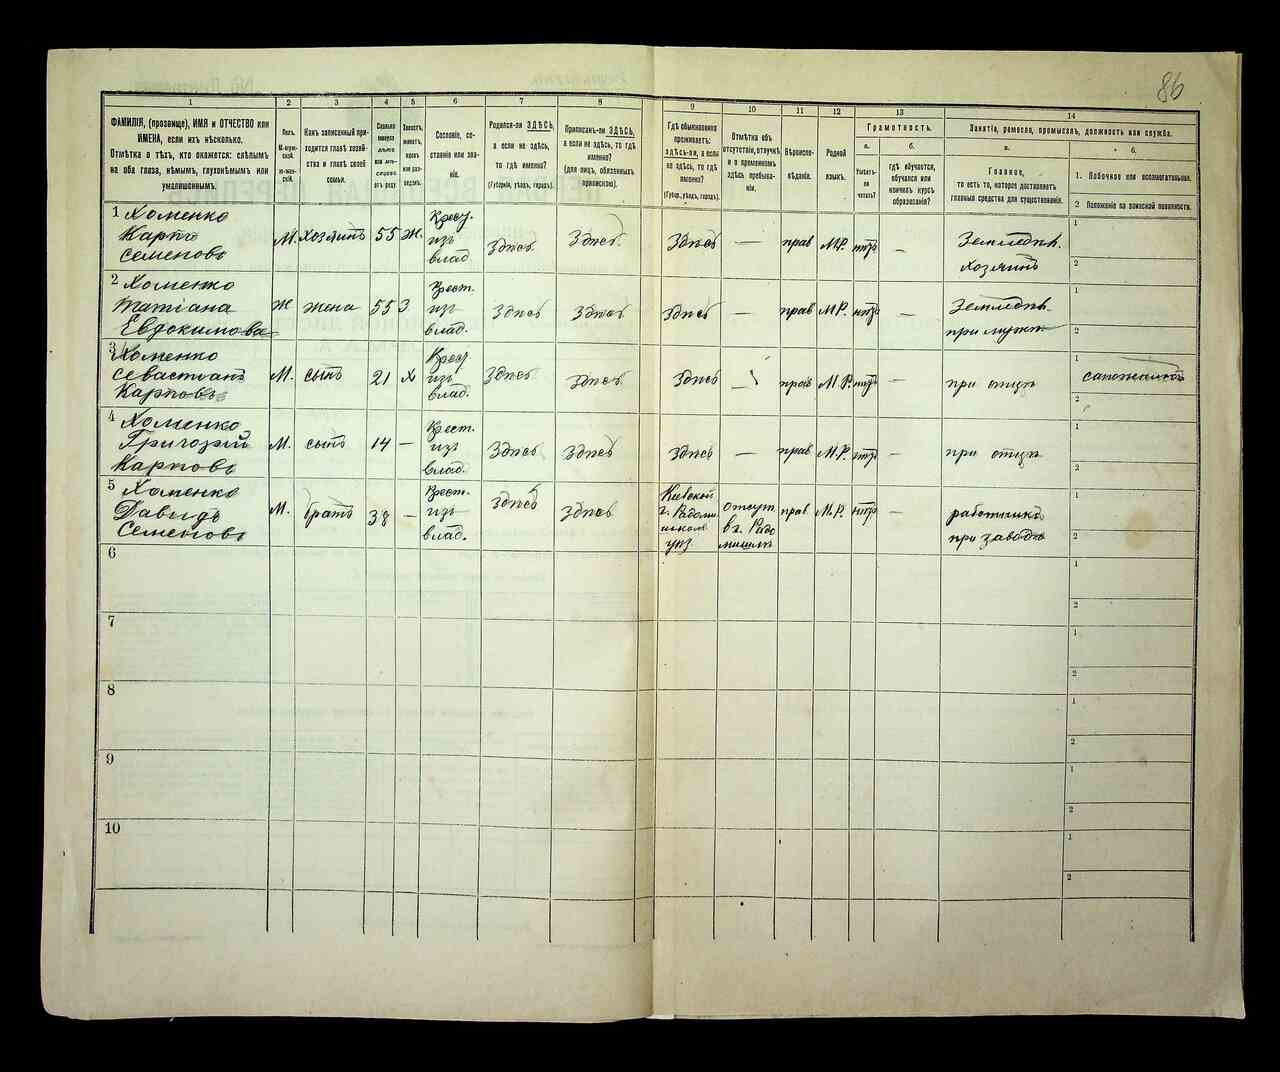 86
1 2 3 4 5 6 7 8 9 10 11 12 13 14
ФАМИЛІЯ, (прозвище), ИМЯ и ОТЧЕСТВО или
ИМЕНА, если ихъ нѣсколько.
Отмѣтка о тѣхъ, кто окажется: слѣпымъ
на оба глаза, нѣмымъ, глухонѣмымъ или
умалишеннымъ.
Полъ.
М-мужской.
Ж-женскій.
Какъ записанный приходится
главѣ хозяйства
и главѣ своей
семьи.
Сколько
минуло
лѣтъ
или мѣсяцевъ
отъ роду.
Холостъ,
женатъ,
вдовъ
или разведенъ.
Сословіе, состояніе
или званіе.
Родился-ли ЗДѢСЬ,
а если не здѣсь,
то гдѣ именно?
(Губернія, уѣздъ, городъ).
Приписанъ-ли ЗДѢСЬ,
а если не здѣсь, то гдѣ
именно?
(для лицъ, обязанныхъ
припискою).
Гдѣ обыкновенно
проживаетъ:
здѣсь-ли, а если
не здѣсь, то гдѣ
именно?
(Губер., уѣздъ, городъ).
Отмѣтка объ
отсутствіи, отлучкѣ
и о временномъ
здѣсь пребываніи.
Вѣроисповѣданіе.
Родной
языкъ.
Грамотность.
а.
Умѣетъ-ли
читать?
б.
гдѣ обучается,
обучался или
кончилъ курсъ
образованія?
Занятіе, ремесло, промыселъ, должность или служба.
а.
Главное,
то есть то, которое доставляетъ
главныя средства для существованія.
б.
1. Побочное или вспомогательное.
2 Положеніе по воинской повинности.
1 Хоменко
Карпъ
Семеновъ
М. хозяинъ 55 ж.
Крест.
изъ
влад
Здѣсь Здѣсь Здѣсь — прав М.Р. нѣтъ —
Земледѣл.
Хозяинъ
1
2
2 Хоменко
Татіана
Евдокимова
Ж жена 55 З
Крест.
изъ
влад.
Здѣсь Здѣсь Здѣсь — прав М.Р. нѣтъ —
Земледѣл.
при мужѣ
1
2
3 Хоменко
Севастіанъ
Карповъ
М. сынъ 21 х
Крест
изъ
влад.
Здѣсь Здѣсь Здѣсь — прав М.Р. нѣтъ —
при отцѣ
1 сапожникъ
2
4 Хоменко
Григорій
Карповъ
М. сынъ 14 —
Крест.
изъ
влад.
Здѣсь Здѣсь Здѣсь — прав М.Р. нѣтъ —
при отцѣ
1
2
5 Хоменко
Давидъ
Семеновъ
М. братъ 38 —
Крест.
изъ
влад.
Здѣсь Здѣсь
Кіевской
г. Радомысльском
уѣз
отсут
въ г. Радо
мыслѣ
прав М.Р. нѣтъ —
работникъ
при заводѣ
1
2
6
1
2
7
1
2
8
1
2
9
1
2
10
1
2